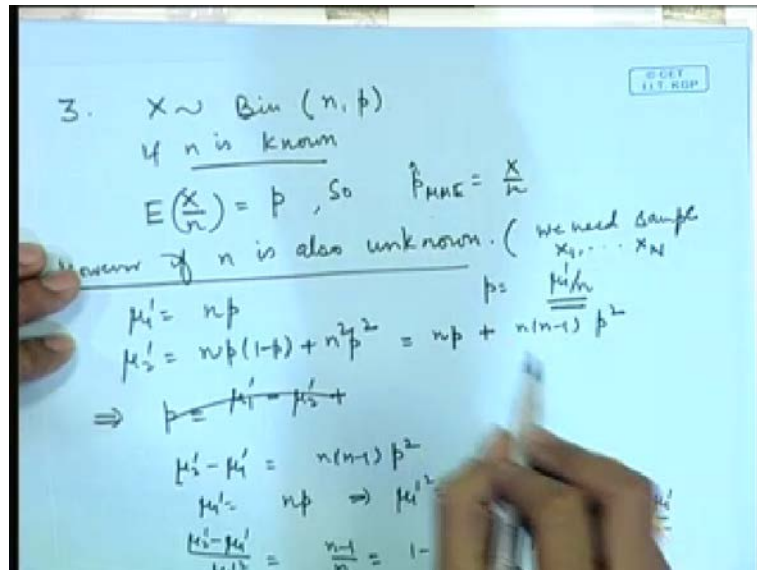 © CET
I.I.T. KGP
3. X ~ Bin (n, p)
If n is known
E(X/n) = p, So p̂_MME = X/n
However if n is also unknown. (we need sample
X₁, .... X_N
p = μ₁'/n
μ₁' = np
μ₂' = np(1-p) + n²p² = np + n(n-1) p²
⇒ p = μ₁' - μ₂' +
μ₂' - μ₁' = n(n-1) p²
μ₁' = np ⇒ μ₁'²
(μ₂' - μ₁')/μ₁'² = (n-1)/n = 1-